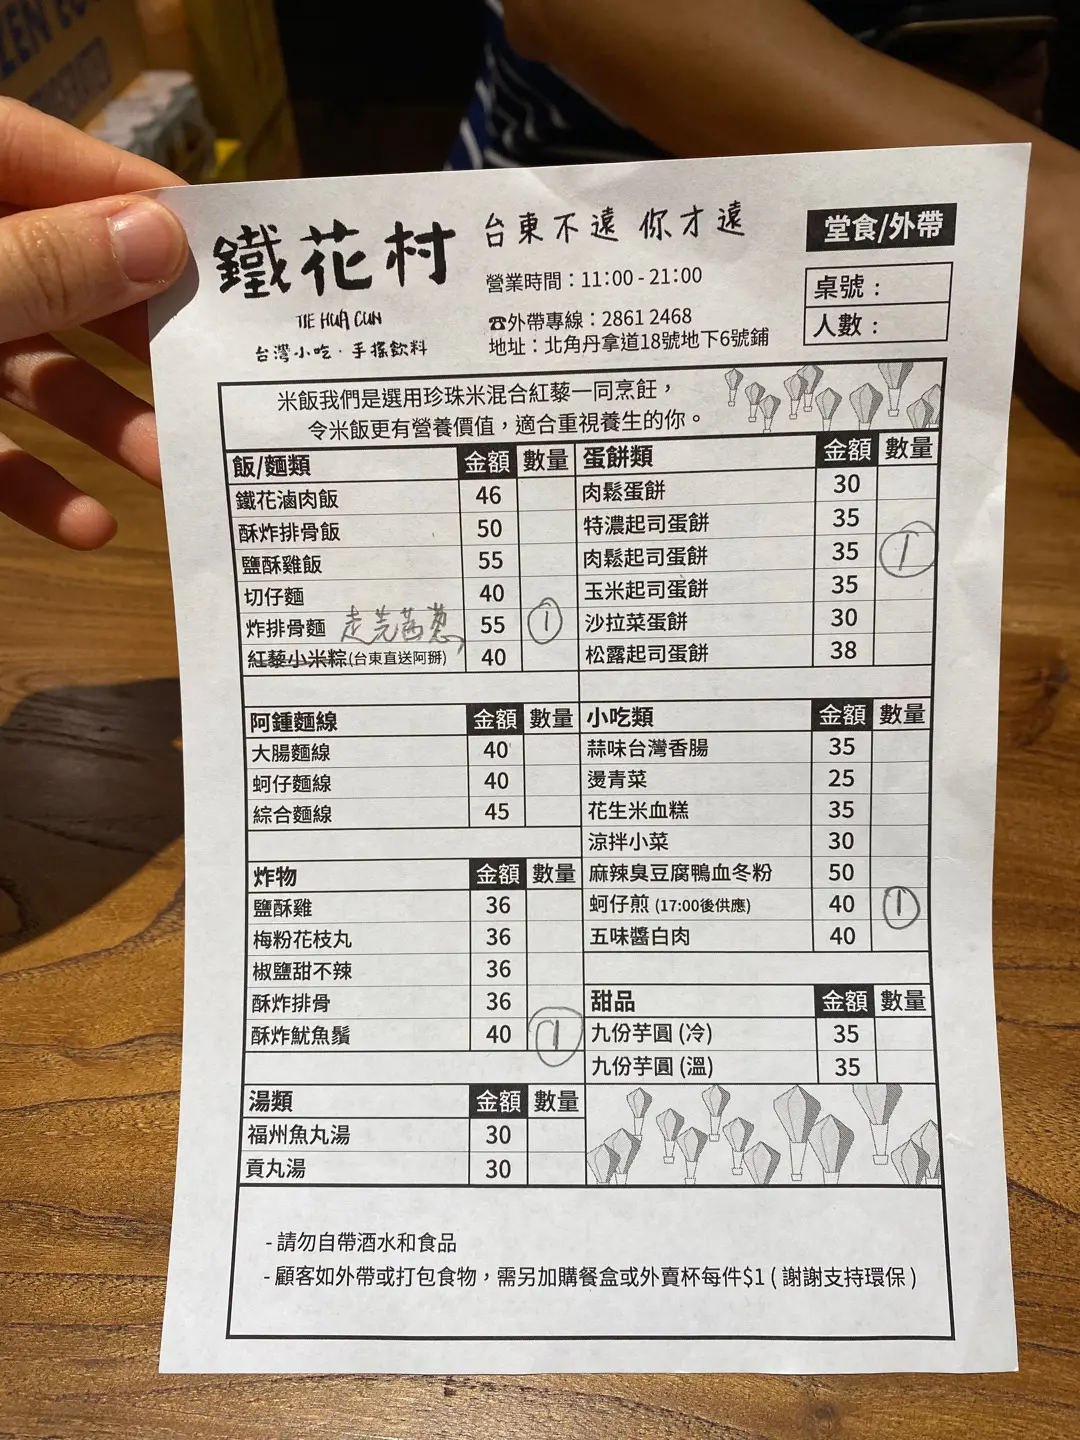 鐵花村
TIE HUA CUN
台灣小吃．手搖飲料
台東不遠 你才遠
營業時間：11:00 - 21:00
☎外帶專線：2861 2468
地址：北角丹拿道18號地下6號鋪
堂食/外帶
桌號：
人數：
米飯我們是選用珍珠米混合紅藜一同烹飪，
令米飯更有營養價值，適合重視養生的你。
飯/麵類 金額 數量
鐵花滷肉飯 46
酥炸排骨飯 50
鹽酥雞飯 55
切仔麵 40
炸排骨麵 走芫茜蔥 55 1
紅藜小米粽(台東直送阿掰) 40
阿鍾麵線 金額 數量
大腸麵線 40
蚵仔麵線 40
綜合麵線 45
炸物 金額 數量
鹽酥雞 36
梅粉花枝丸 36
椒鹽甜不辣 36
酥炸排骨 36
酥炸魷魚鬚 40 1
湯類 金額 數量
福州魚丸湯 30
貢丸湯 30
蛋餅類 金額 數量
肉鬆蛋餅 30
特濃起司蛋餅 35
肉鬆起司蛋餅 35 1
玉米起司蛋餅 35
沙拉菜蛋餅 30
松露起司蛋餅 38
小吃類 金額 數量
蒜味台灣香腸 35
燙青菜 25
花生米血糕 35
涼拌小菜 30
麻辣臭豆腐鴨血冬粉 50
蚵仔煎 (17:00後供應) 40 1
五味醬白肉 40
甜品 金額 數量
九份芋圓 (冷) 35
九份芋圓 (溫) 35
- 請勿自帶酒水和食品
- 顧客如外帶或打包食物，需另加購餐盒或外賣杯每件$1 ( 謝謝支持環保 )